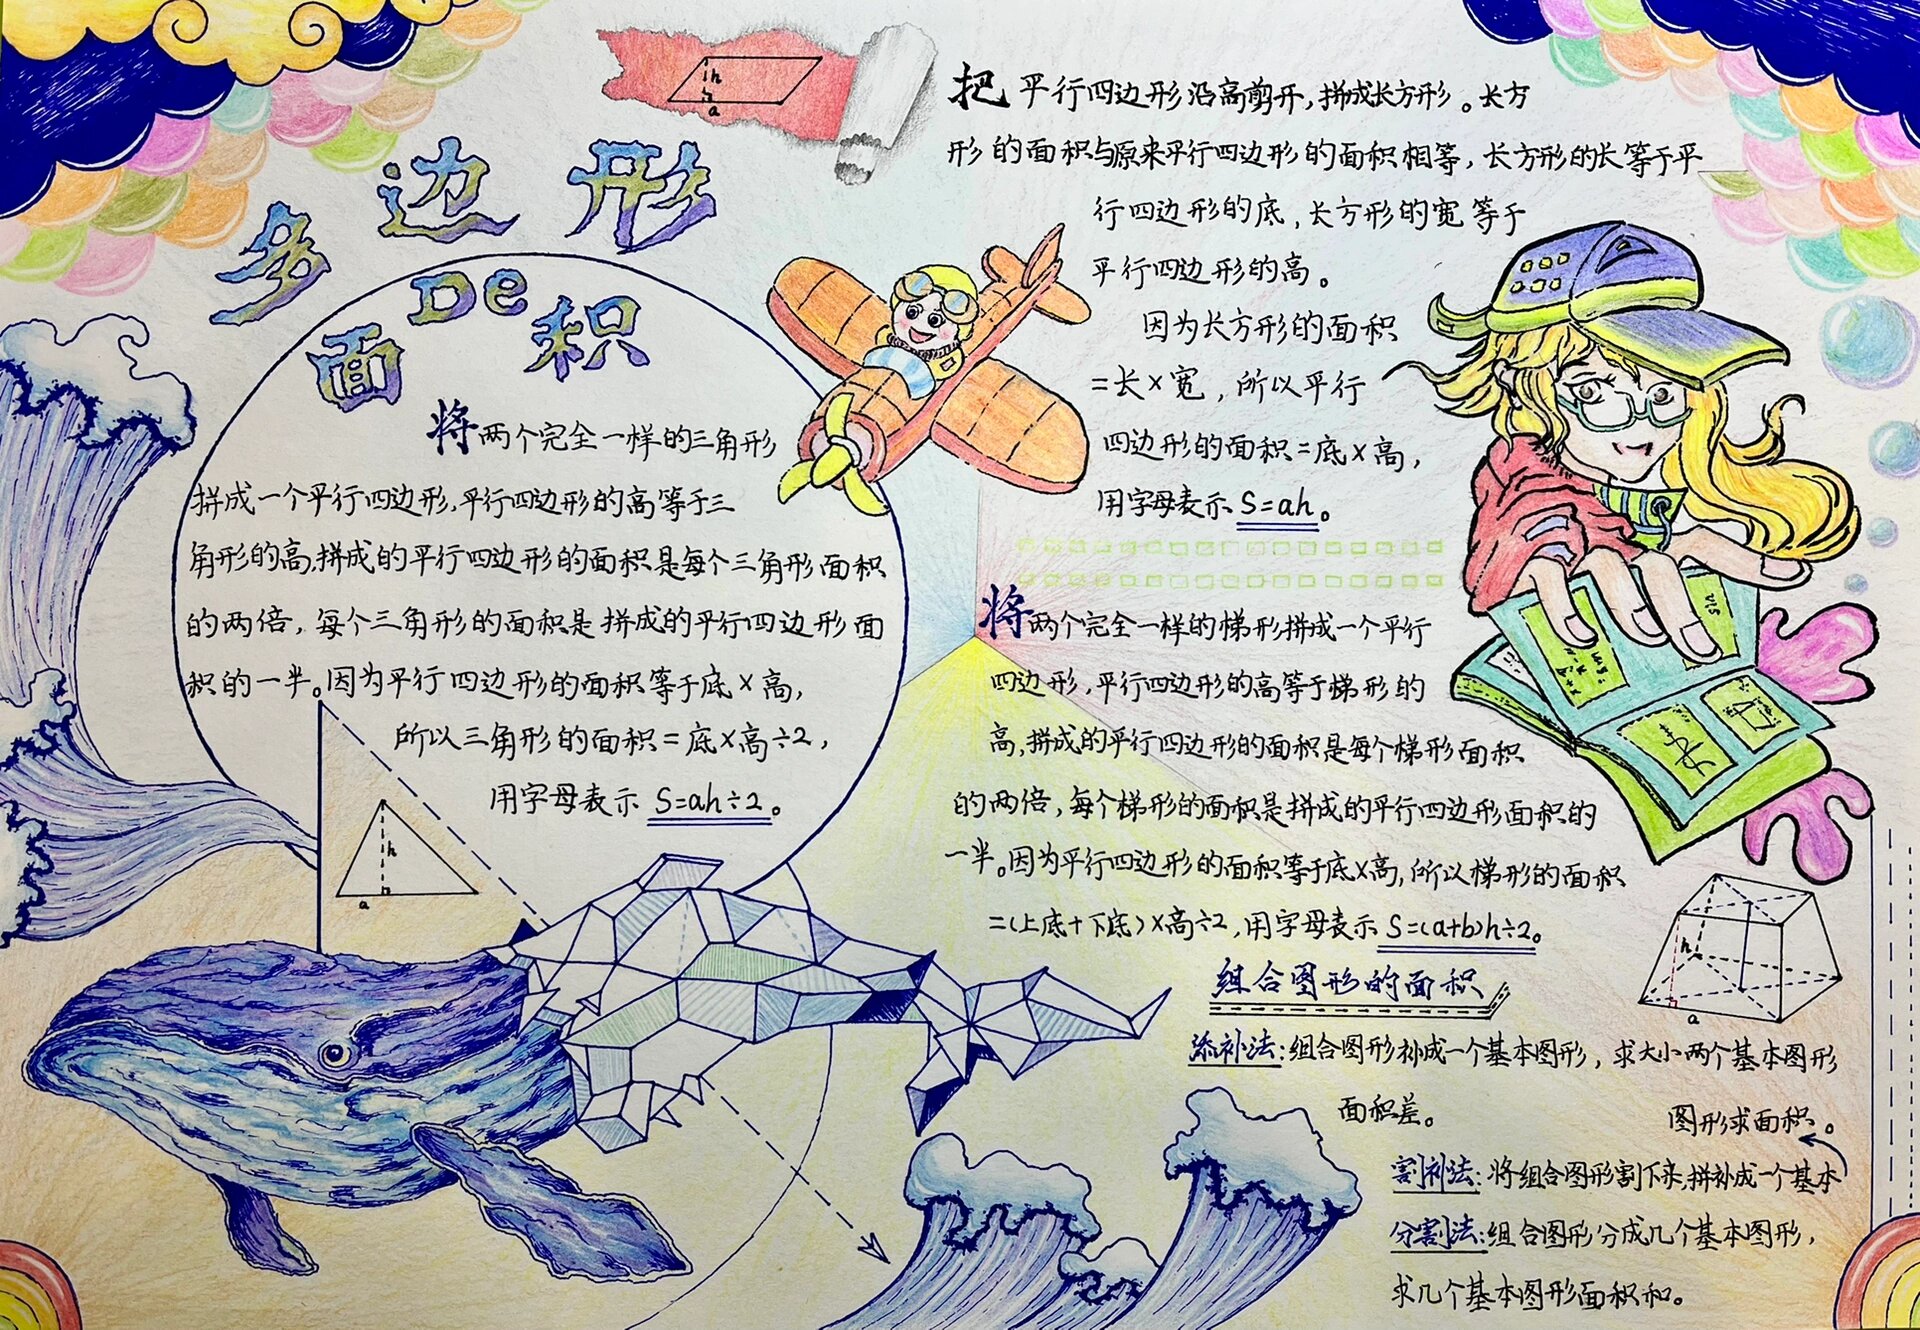 多边形
De
面积
将两个完全一样的三角形
拼成一个平行四边形,平行四边形的高等于三
角形的高,拼成的平行四边形的面积是每个三角形面积
的两倍，每个三角形的面积是拼成的平行四边形面
积的一半。因为平行四边形的面积等于底×高，
所以三角形的面积=底×高÷2，
用字母表示 S=ah÷2。
h
a
h
a
把平行四边形沿高剪开，拼成长方形。长方
形的面积与原来平行四边形的面积相等，长方形的长等于平
行四边形的底，长方形的宽等于
平行四边形的高。
因为长方形的面积
=长×宽，所以平行
四边形的面积=底×高，
用字母表示 S=ah。
将两个完全一样的梯形拼成一个平行
四边形，平行四边形的高等于梯形的
高,拼成的平行四边形的面积是每个梯形面积
的两倍，每个梯形的面积是拼成的平行四边形面积的
一半。因为平行四边形的面积等于底×高,所以梯形的面积
=(上底+下底)×高÷2,用字母表示 S=(a+b)h÷2。
h
a
组合图形的面积
添补法:组合图形补成一个基本图形，求大小两个基本图形
面积差。
割补法:将组合图形割下来,拼补成一个基本
图形求面积。
分割法:组合图形分成几个基本图形，
求几个基本图形面积和。